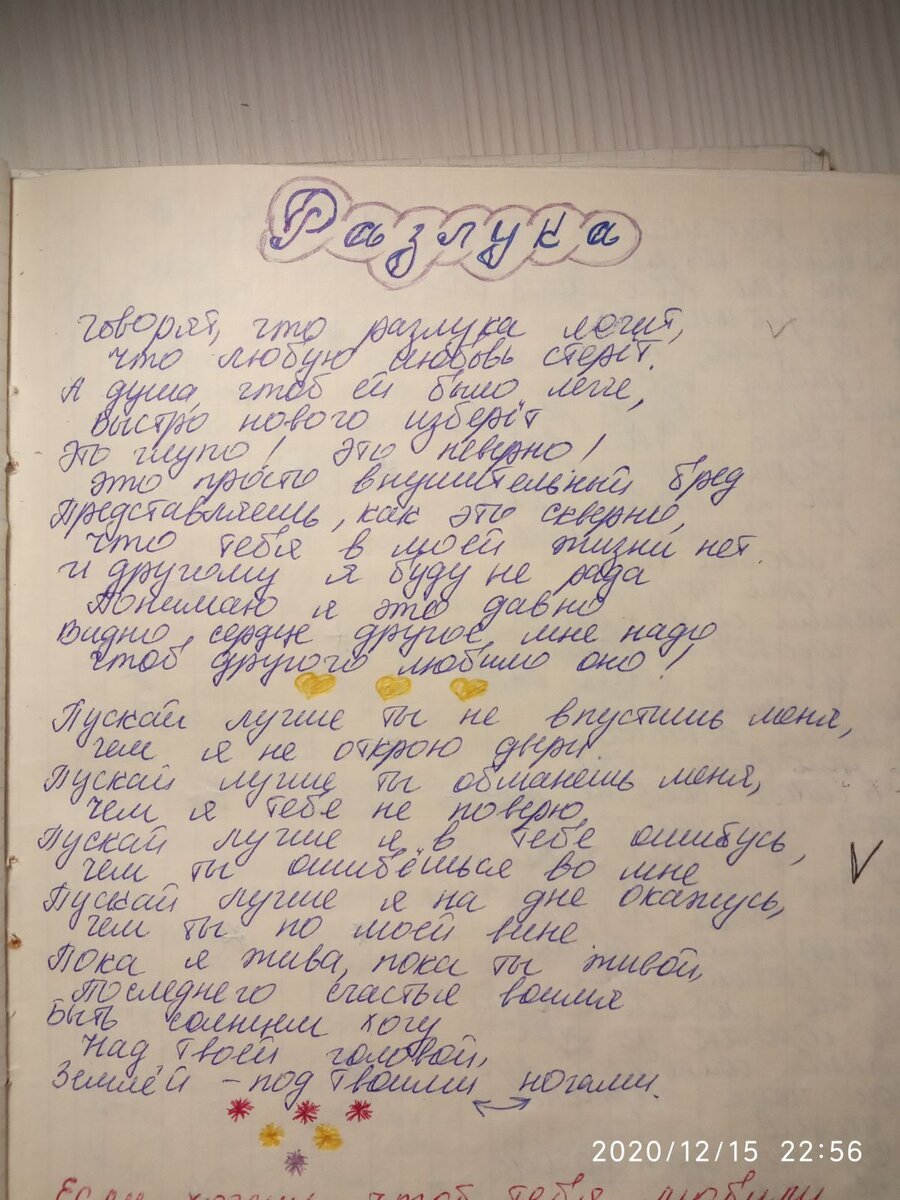 Разлука
Говорят, что разлука лечит,
что любую любовь стерёт.
А душа, чтоб ей было легче,
быстро нового изберёт
Это глупо! Это неверно!
Это просто внушительный бред
Представляешь, как это скверно,
что тебя в моей жизни нет
И другому я буду не рада
Понимаю я это давно
Видно, сердце другое мне надо,
чтоб другого любило оно!
Пускай лучше ты не впустишь меня,
чем я не открою двери
Пускай лучше ты обманешь меня,
чем я тебе не поверю,
Пускай лучше я в тебе ошибусь,
чем ты ошибёшься во мне
Пускай лучше я на дне окажусь,
чем ты по моей вине
Пока я жива, пока ты живой,
Последнего счастья во имя
Быть солнцем хочу
Над твоей головой,
Землёй - под твоими ногами.
2020/12/15 22:56
Если хочешь чтоб тебя любили